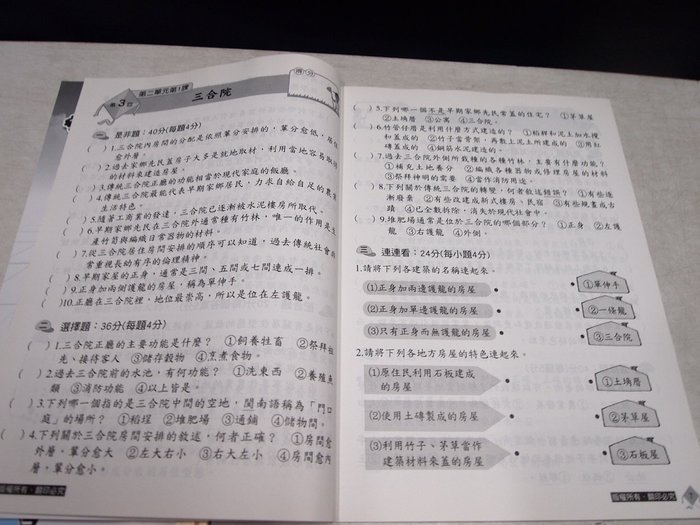 第3回
第二單元第1課
三合院
得分
一、是非題:40分(每題4分)
( )1.三合院內房間的分配是依照輩分安排的,輩分愈低,居住
愈外層。
( )2.過去家鄉先民蓋房子大多是就地取材,利用當地容易取得
的材料來建造房屋。
( )3.傳統三合院正廳的功能相當於現代家庭的飯廳。
( )4.傳統三合院最能代表早期家鄉居民,力求自給自足的農家
生活特色。
( )5.隨著工商業的發達,三合院已逐漸被水泥樓房所取代。
( )6.早期家鄉先民在三合院外通常種有竹林,唯一的作用是生
產竹筍與編織日常器物的材料。
( )7.從三合院居住房間安排的順序可以知道,過去傳統社會非
常重視長幼有序的倫理精神。
( )8.早期家屋的正身,通常是三間、五間或七間連成一排。
( )9.正身加兩側護龍的房屋,稱為單伸手。
( )10.正廳在三合院裡,地位最崇高,所以是位在左護龍。
二、選擇題:36分(每題4分)
( )1.三合院正廳的主要功能是什麼? ①飼養牲畜 ②祭拜祖
先、接待客人 ③儲存穀物 ④烹煮食物。
( )2.過去三合院前的水池,有何功能? ①洗東西 ②養殖魚
類 ③消防功能 ④以上皆是。
( )3.下列哪一個指的是三合院中間的空地,閩南語稱為「門口
庭」的場所? ①稻埕 ②堆肥場 ③通鋪 ④儲物間。
( )4.下列關於三合院房間安排的敘述,何者正確? ①房間愈
外層,輩分愈大 ②左大右小 ③右大左小 ④房間愈內
層,輩分愈小。
版權所有‧翻印必究
( )5.下列哪一個不是早期家鄉先民常蓋的住宅? ①茅草屋
②土墑厝 ③公寓 ④三合院。
( )6.竹管仔厝是利用什麼方式建造的? ①稻稈和泥土加水攪
和蓋成的 ②竹子當骨架,再敷上泥土所建成的 ③用紅
磚蓋成的 ④鋼筋水泥建造的。
( )7.過去三合院外側所栽種的各種竹林,主要有什麼功能?
①補充土地養分 ②編織各種器物或修理房屋的材料
③祭拜神明的需要 ④當作消防用途。
( )8.下列關於傳統三合院的轉變,何者敘述錯誤? ①有些逐
漸廢棄 ②有些改建成新式樓房、民宿 ③有些規畫成古
蹟 ④已全數拆除,消失於現代社會中。
( )9.堆肥場通常是位於三合院的哪個部分? ①正身 ②左護
龍 ③右護龍 ④外側。
三、連連看:24分(每小題4分)
1.請將下列各建築的名稱連起來。
(1)正身加兩邊護龍的房屋
①單伸手
(2)正身加單邊護龍的房屋
②一條龍
(3)只有正身而無護龍的房屋
③三合院
2.請將下列各地方房屋的特色連起來。
(1)原住民利用石板建成
的房屋
①土墑厝
(2)使用土磚製成的房屋
②茅草屋
(3)利用竹子、茅草當作
建築材料來蓋的房屋
③石板屋
版權所有‧翻印必究